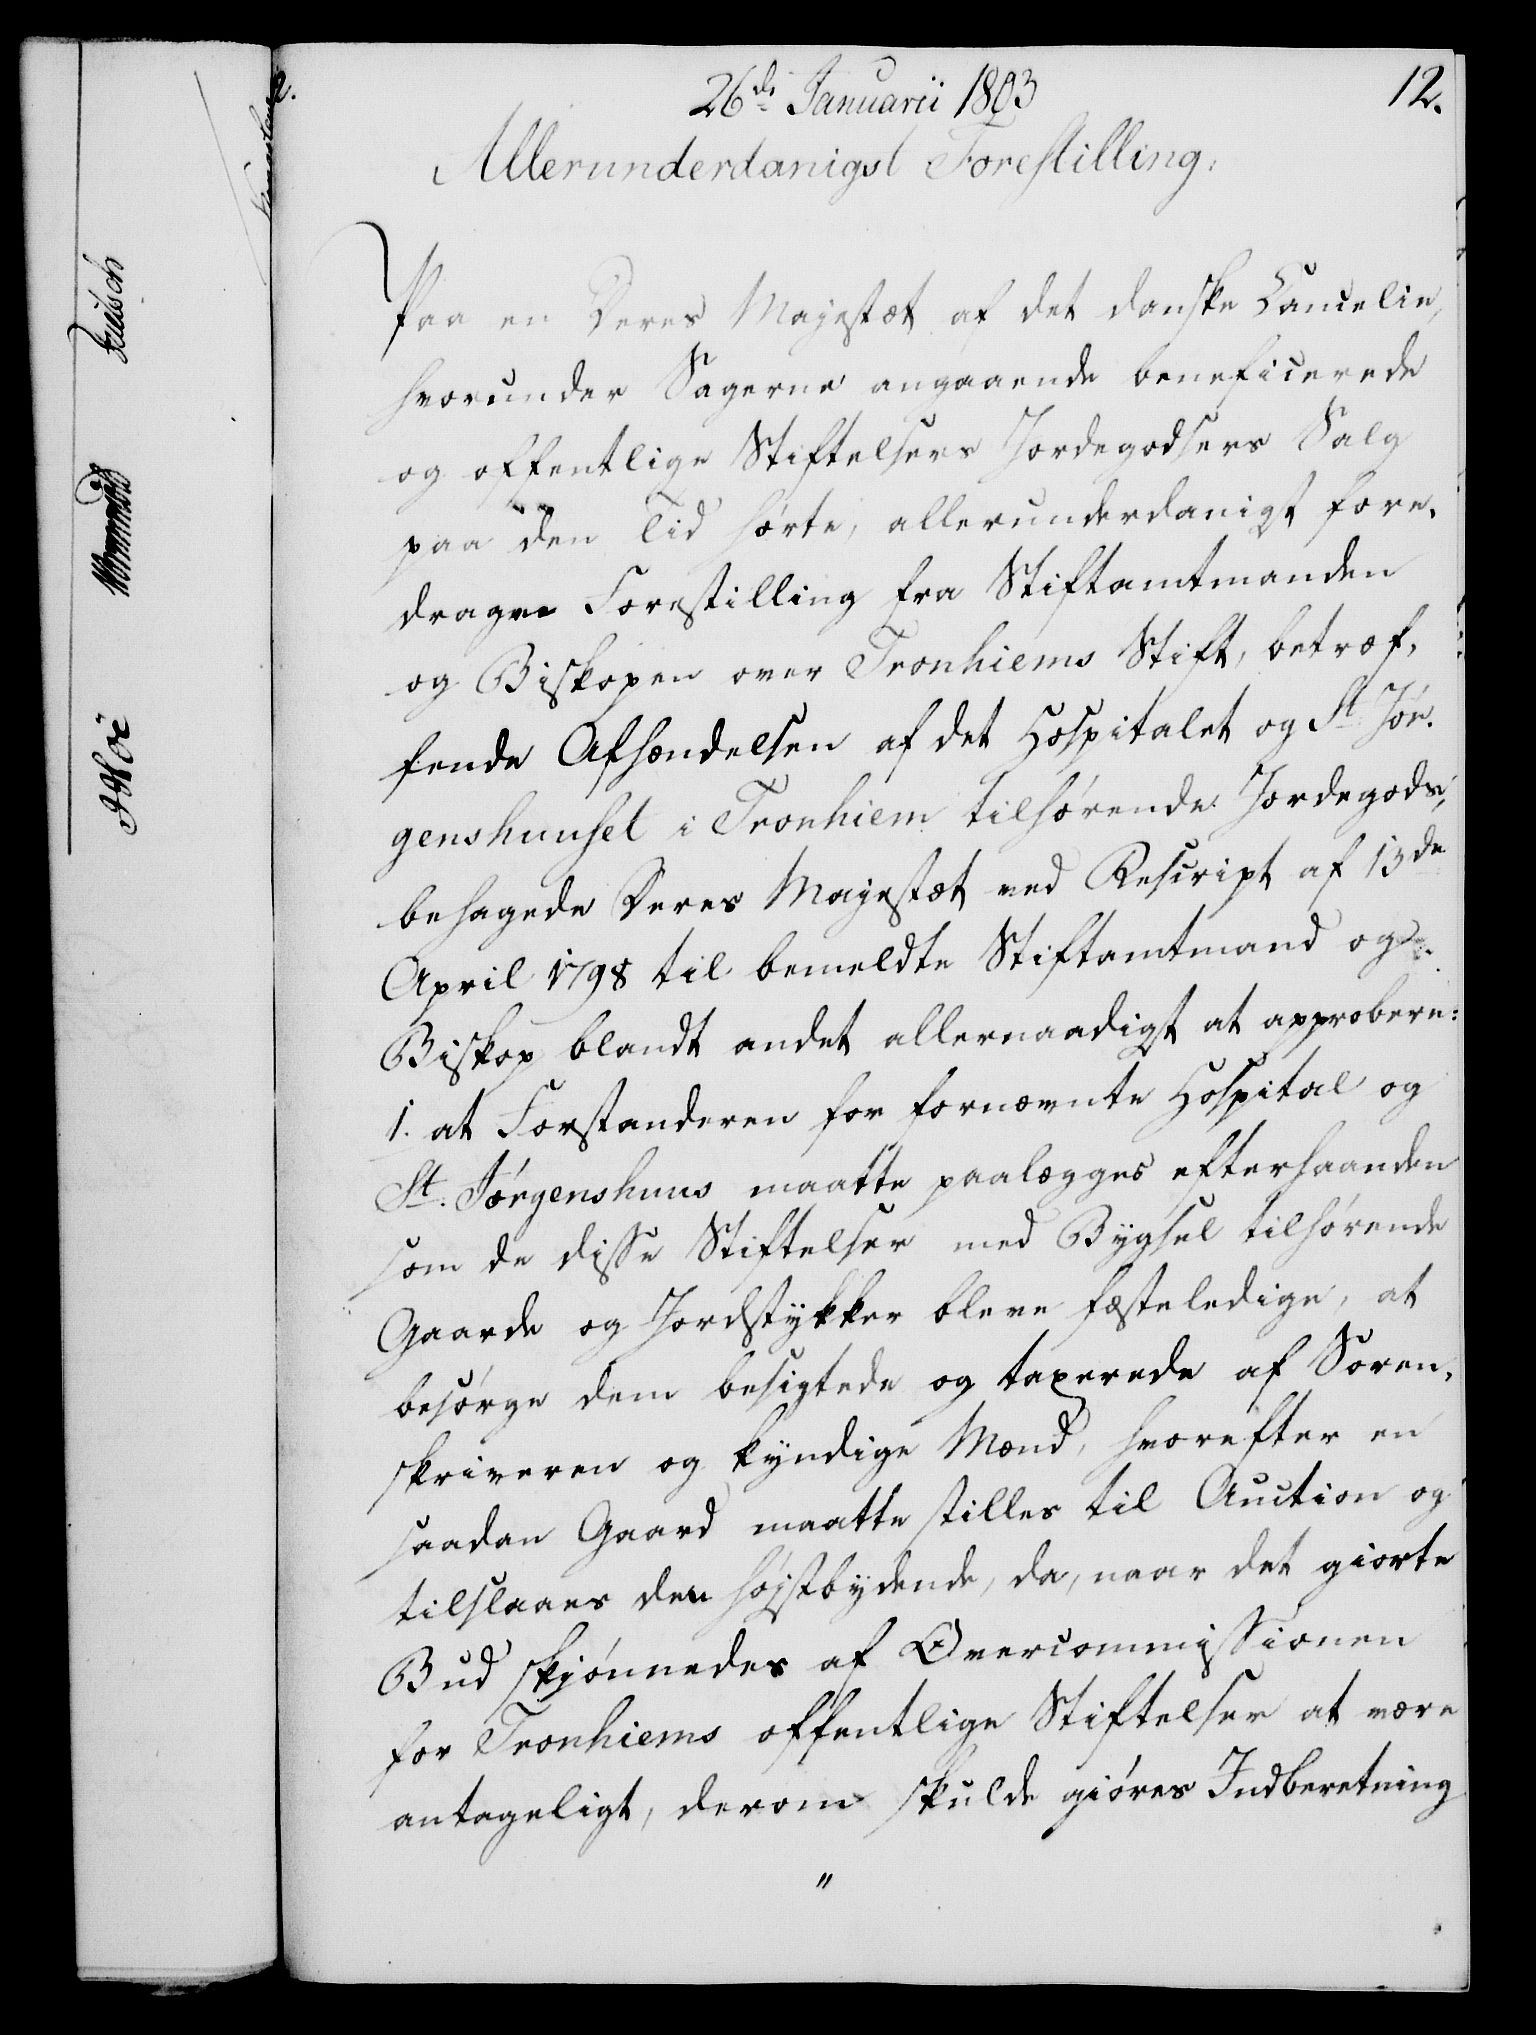 26de Januarii 1803
12.
Allerunderdanigst Forestilling.
Paa en Deres Majestæt af det danske Cancelie,
hvorunder Sagerne angaaende beneficerede
og offentlige Stiftelsers Jordegodsers Salg
paa den Tid hørte, allerunderdanigst fore-
dragne Forestilling fra Stiftamtmanden
og Biskopen over Tronhiems Stift, betræf-
fende Afhændelsen af det Hospitalet og St. Jør-
genshuuset i Tronhiem tilhørende Jordegods,
behagede Deres Majestæt ved Rescript af 13de
April 1798 til bemeldte Stiftamtmand og
Biskop blandt andet allernaadigst at approbere:
1. at Forstanderen for fornævnte Hospital og
St. Jørgenshuus maatte paalægges efterhaanden
som de disse Stiftelser med Bygsel tilhørende
Gaarde og Jordstykker bleve fæsteledige, at
besørge dem besigtede og taxerede af Soren-
skriveren og kyndige Mænd, hvorefter en
saadan Gaard maatte stilles til Auction og
tilslaaes den højstbydende, da, naar det giorte
Bud skjønnedes af Overcommissionen
for Tronhiems offentlige Stiftelser at være
antageligt, derom skulde giøres Indberetning
"